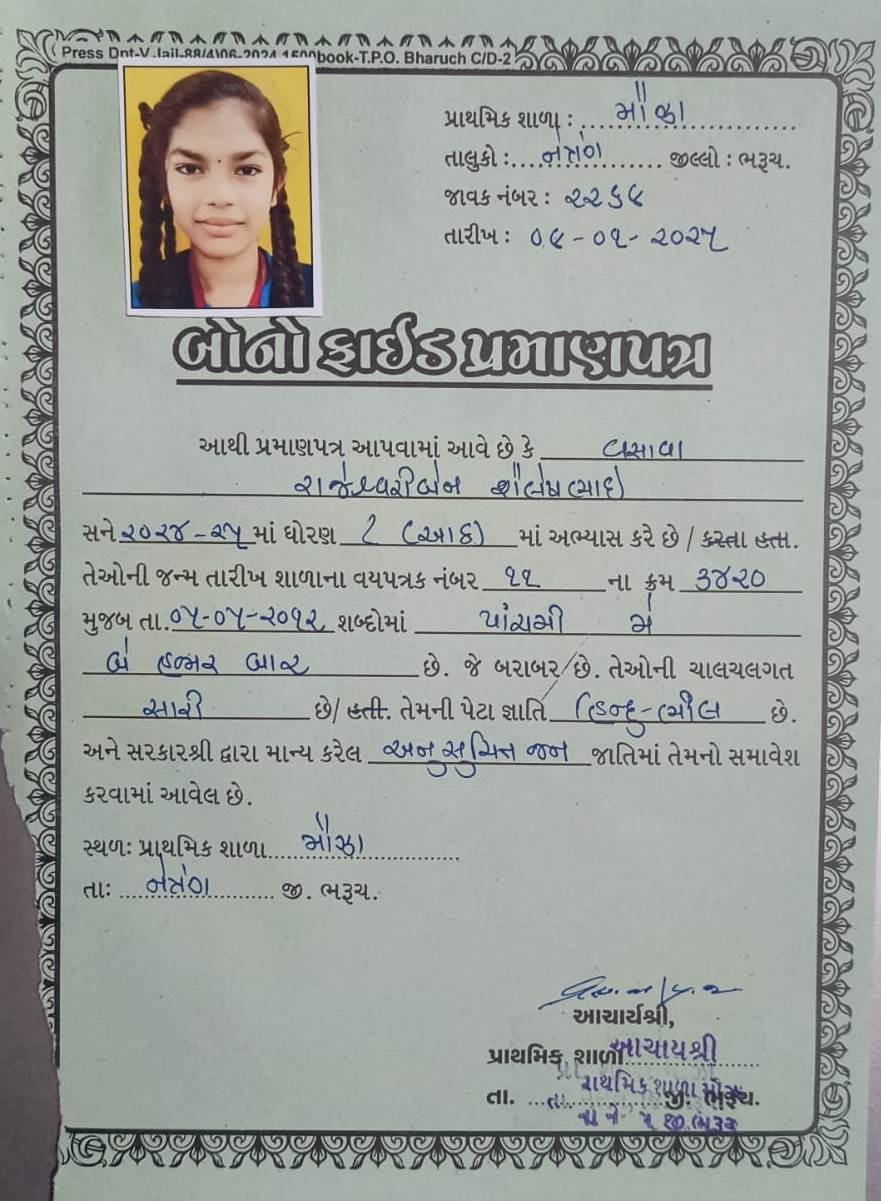 Press Dnt-V.Jail-88/4)06-2024 1500book-T.P.O. Bharuch C/D-2
પ્રાથમિક શાળા : મૌઝા
તાલુકો : નેત્રંગ જીલ્લો : ભરૂચ.
જાવક નંબર : ૨૨૬૯
તારીખ : ૦૯-૦૧-૨૦૨૫
બોનોફાઈડ પ્રમાણપત્ર
આથી પ્રમાણપત્ર આપવામાં આવે છે કે વસાવા
રાજેશ્વરીબેન શૈલેષભાઈ
સને ૨૦૨૪-૨૫ માં ધોરણ ૮ (આઠ) માં અભ્યાસ કરે છે / કરતા હતા.
તેઓની જન્મ તારીખ શાળાના વયપત્રક નંબર ૧૧ ના ક્રમ ૩૪૨૦
મુજબ તા. ૦૫-૦૫-૨૦૧૨ શબ્દોમાં પાંચમી મે
બે હજાર બાર છે. જે બરાબર છે. તેઓની ચાલચલગત
સારી છે/ હતી. તેમની પેટા જ્ઞાતિ હિન્દુ-ભીલ છે.
અને સરકારશ્રી દ્વારા માન્ય કરેલ અનુસુચિત જન જાતિમાં તેમનો સમાવેશ
કરવામાં આવેલ છે.
સ્થળઃ પ્રાથમિક શાળા મૌઝા
તાઃ નેત્રંગ જી. ભરૂચ.
આચાર્યશ્રી,
પ્રાથમિક શાળા આચાયશ્રી
તા. જી. ભરૂચ.
પ્રાથમિક શાળા
જી.ભરૂચ